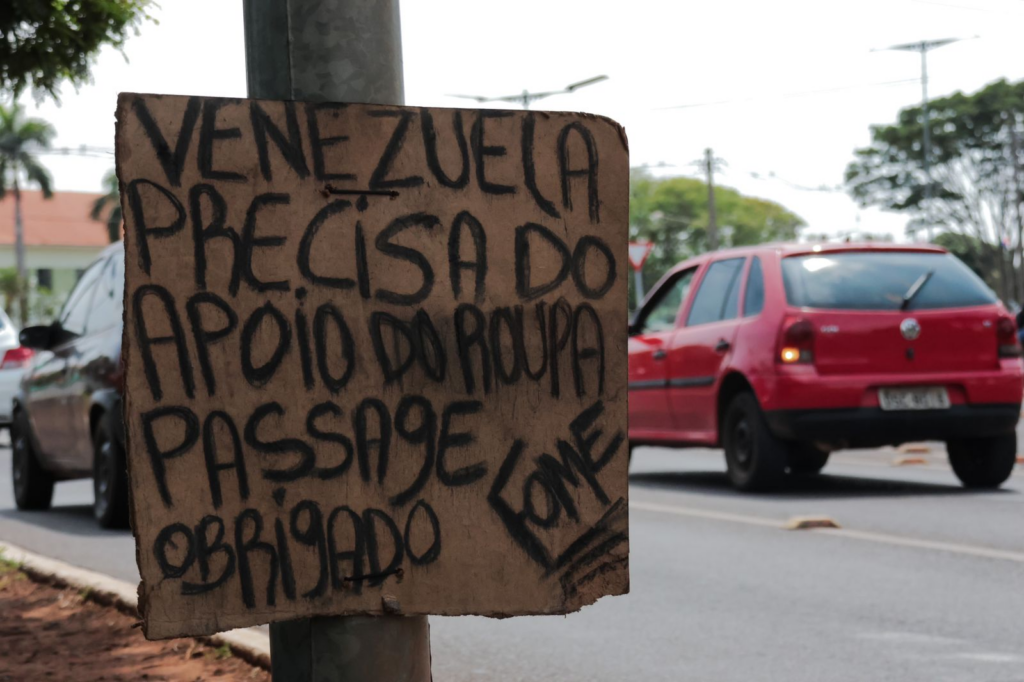 VENEZUELA
PRECISA DO
APOIO DO ROUPA
PASSAGE
FOME
OBRIGADO